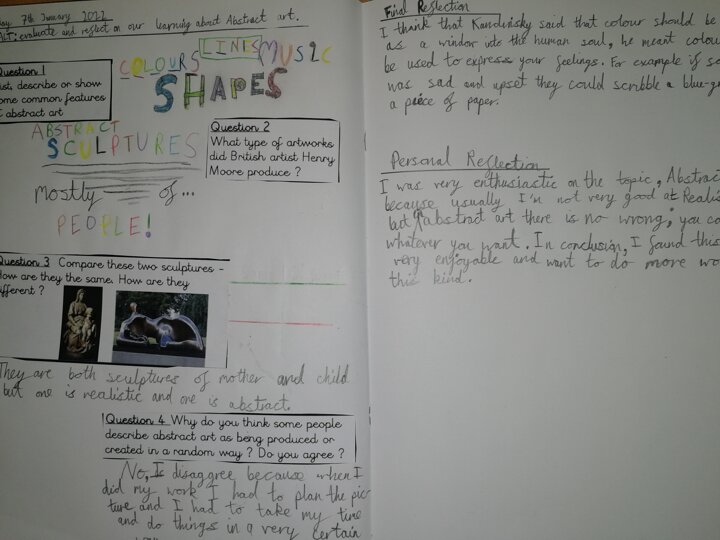 7th January 2022
evaluate and reflect on our learning about Abstract art.
COLOURS LINES MUSIC
SHAPES
Question 1
list, describe or show
some common features
of abstract art
ABSTRACT
SCULPTURES
mostly of...
PEOPLE!
Question 2
What type of artworks
did British artist Henry
Moore produce ?
Question 3 Compare these two sculptures -
How are they the same. How are they
different ?
They are both sculptures of mother and child
but one is realistic and one is abstract.
Question 4 Why do you think some people
describe abstract art as being produced or
created in a random way ? Do you agree ?
No, I disagree because when I
did my work I had to plan the pic
ture and I had to take my time
and do things in a very certain
Final Reflection
I think that Kandinsky said that colour should be
as a window into the human soul, he meant colou
be used to express your feelings. For example if so
was sad and upset they could scribble a blue-g
a piece of paper.
Personal Reflection
I was very enthusiastic on the topic, Abstrac
because usually I'm not very good at Realis
but in abstract art there is no wrong, you ca
whatever you want. In conclusion, I found this
very enjoyable and want to do more wo
this kind.